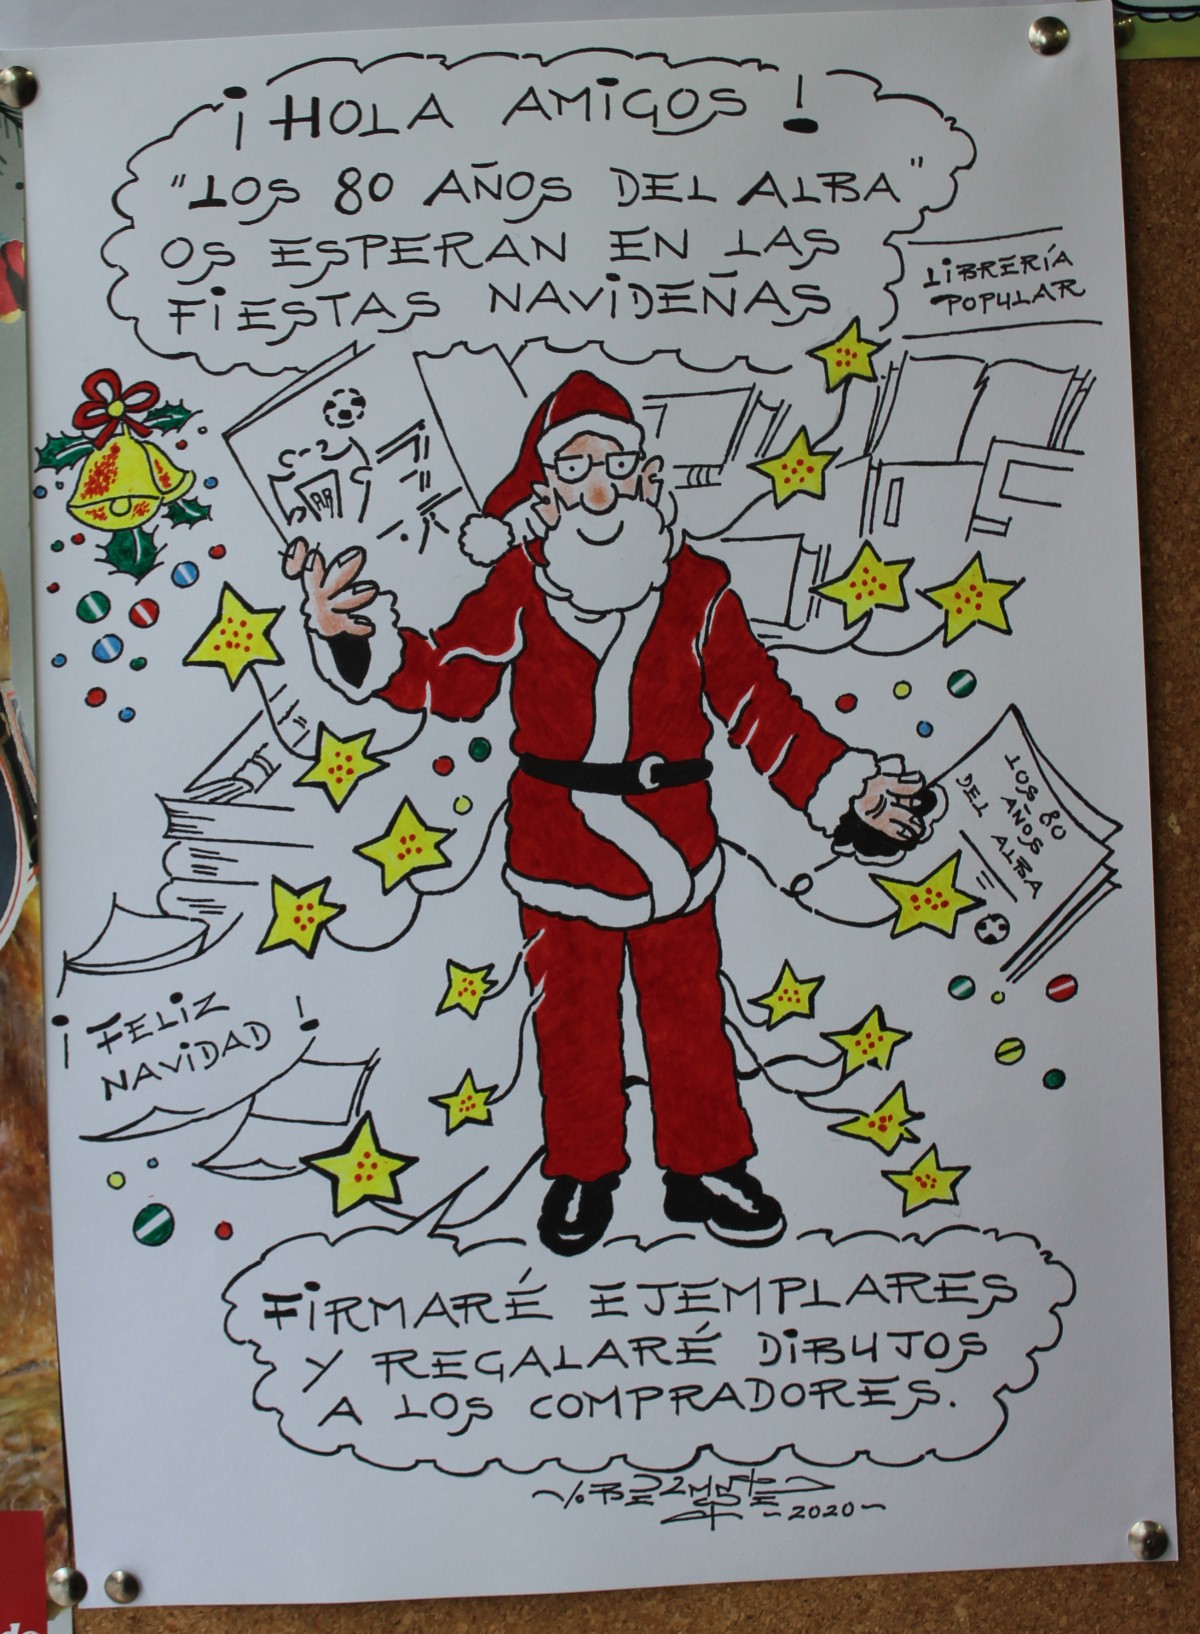 ¡HOLA AMIGOS!
"LOS 80 AÑOS DEL ALBA"
OS ESPERAN EN LAS
FIESTAS NAVIDEÑAS
LIBRERÍA
POPULAR
LOS 80
AÑOS
DEL ALBA
¡FELIZ
NAVIDAD!
FIRMARÉ EJEMPLARES
Y REGALARÉ DIBUJOS
A LOS COMPRADORES.
-2020-